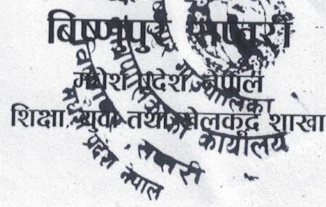 बिष्णुपुर, सप्तरी
मधेश प्रदेश, नेपाल
शिक्षा, युवा तथा खेलकुद शाखा
कार्यालय
सप्तरी
प्रदेश नेपाल